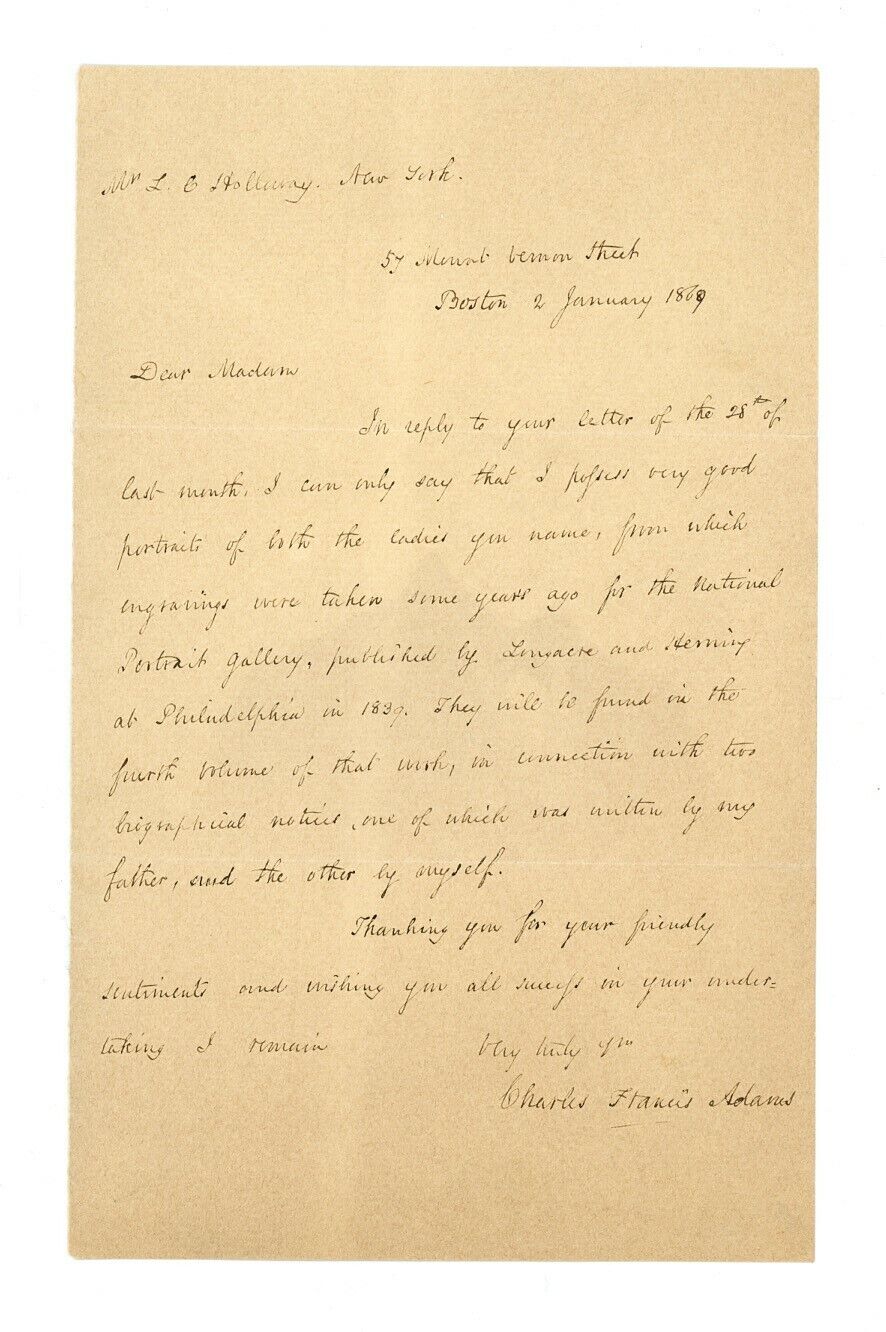 Mrs L. C Holloway. New York.
57 Mount Vernon Street
Boston 2 January 1869
Dear Madam
In reply to your letter of the 28th of
last month, I can only say that I possess very good
portraits of both the ladies you name, from which
engravings were taken some years ago for the National
Portrait Gallery, published by Longacre and Herring
at Philadelphia in 1839. They will be found in the
fourth volume of that work, in connection with two
biographical notices, one of which was written by my
father, and the other by myself.
Thanking you for your friendly
sentiments and wishing you all success in your under-
taking I remain
Very truly yrs
Charles Francis Adams